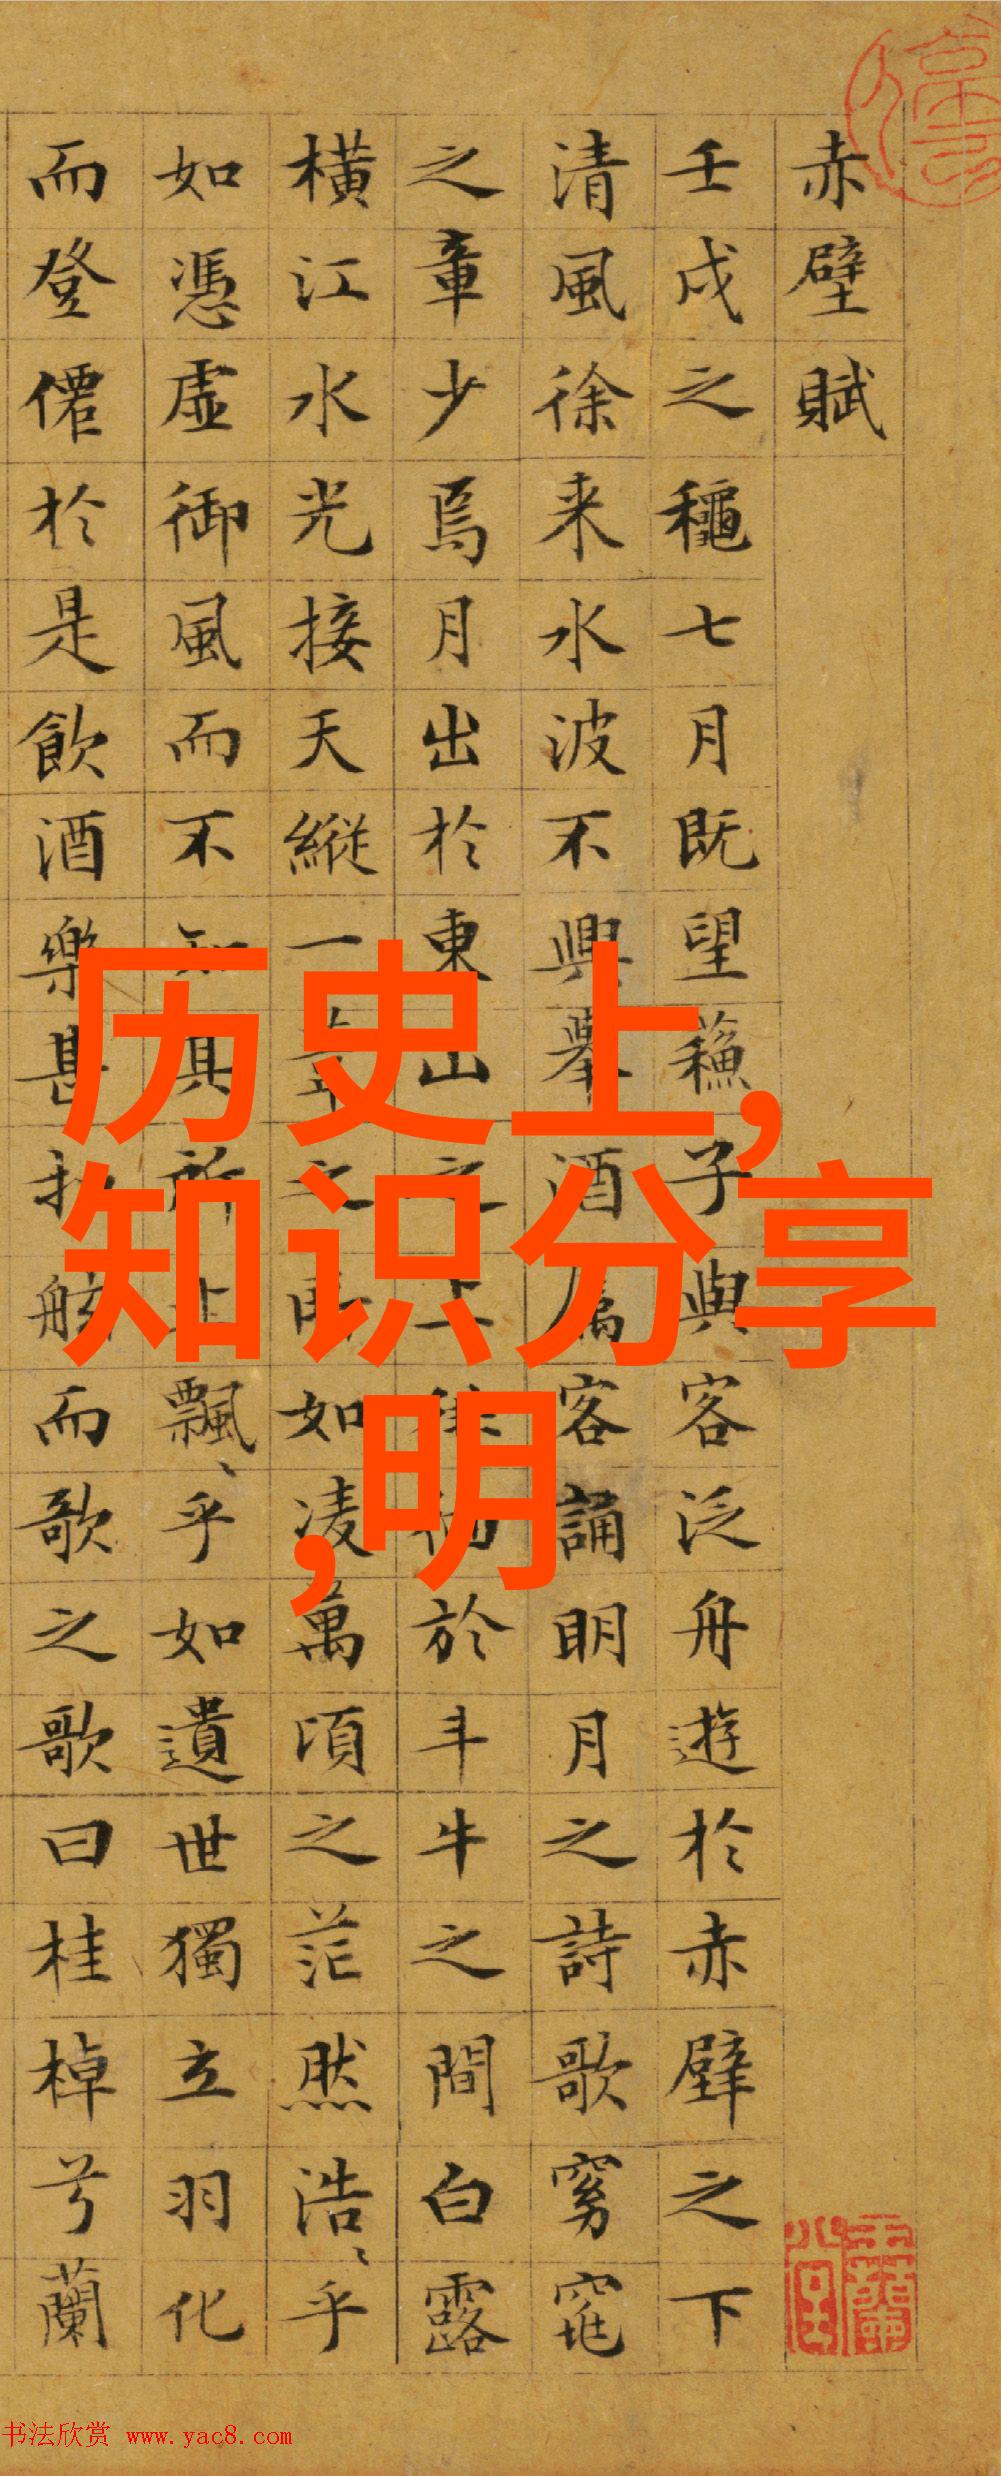 赤壁賦
壬戌之龝七月既望蘓子與客泛舟遊於赤壁之下
清風徐来水波不興舉酒属客誦明月之詩歌窈窕
之章少焉月出於東山之上徘徊於斗牛之間白露
橫江水光接天縱一葦之所如凌萬頃之茫然浩〻乎
如憑虛御風而不知其所止飄〻乎如遺世獨立羽化
而登僊於是飲酒樂甚扣舷而歌之歌曰桂棹兮蘭
历史上,
知识分享
,明
书法欣赏 www.yac8.com